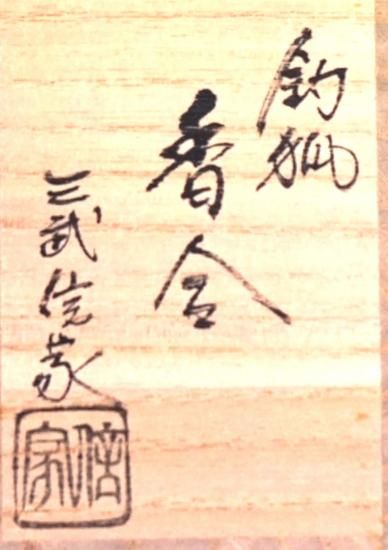 釣狐
香合
三武信家
信家